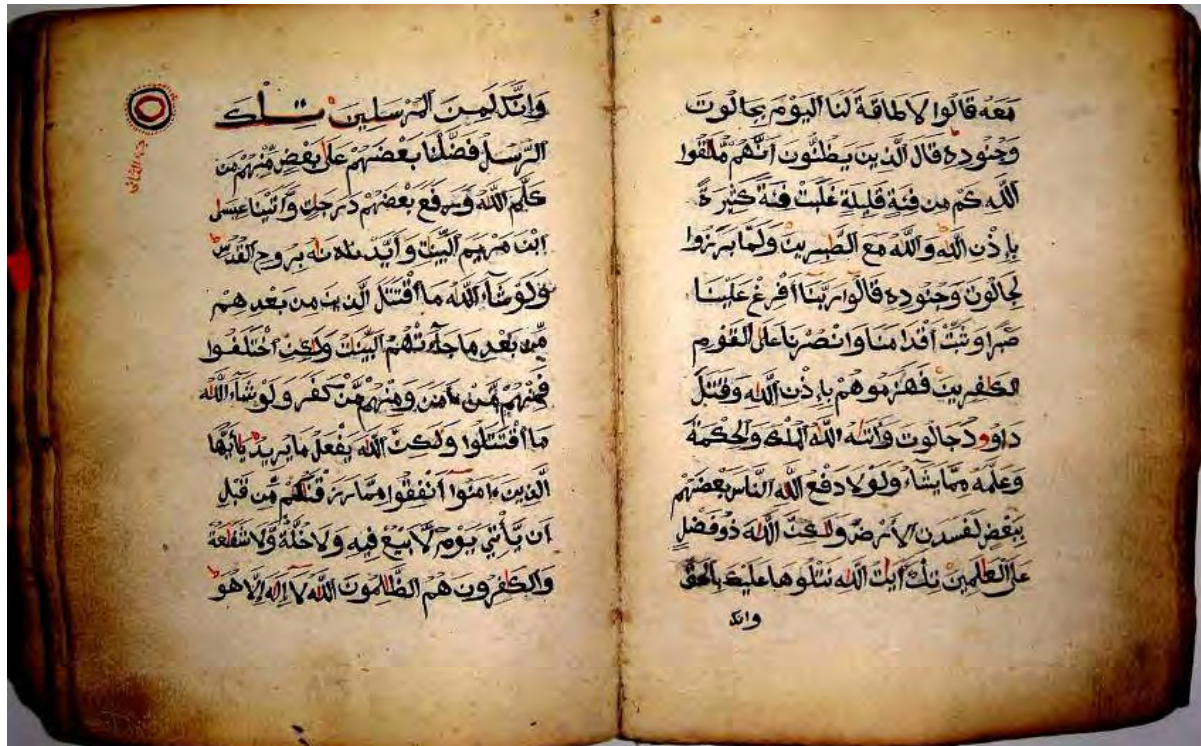 معه قالوا لا طاقة لنا اليوم بجالوت
وجنوده قال الذين يظنون انهم ملقوا
الله كم من فئة قليلة غلبت فئة كثيرة
بإذن الله والله مع الصبرين ولما برزوا
لجالوت وجنوده قالوا ربنا أفرغ علينا
صبرا وثبت أقدامنا وانصرنا على القوم
الكفرين فهزموهم بإذن الله وقتل
داوود جالوت وءاتىه الله الملك والحكمة
وعلمه مما يشاء ولولا دفع الله الناس بعضهم
ببعض لفسدت الارض ولكن الله ذو فضل
على العلمين تلك ءايت الله نتلوها عليك بالحق
وانك
وانك لمن المرسلين تلك
جزء الثالث
الرسل فضلنا بعضهم على بعض منهم من
كلم الله ورفع بعضهم درجت وءاتينا عيسى
ابن مريم البينت وأيدناه بروح القدس
ولو شاء الله ما اقتتل الذين من بعدهم
من بعد ما جاءتهم البينت ولكن اختلفوا
فمنهم من ءامن ومنهم من كفر ولو شاء الله
ما اقتتلوا ولكن الله يفعل ما يريد يأيها
الذين ءامنوا أنفقوا مما رزقنكم من قبل
ان يأتي يوم لا بيع فيه ولا خلة ولا شفعة
والكفرون هم الظلمون الله لا إله إلا هو